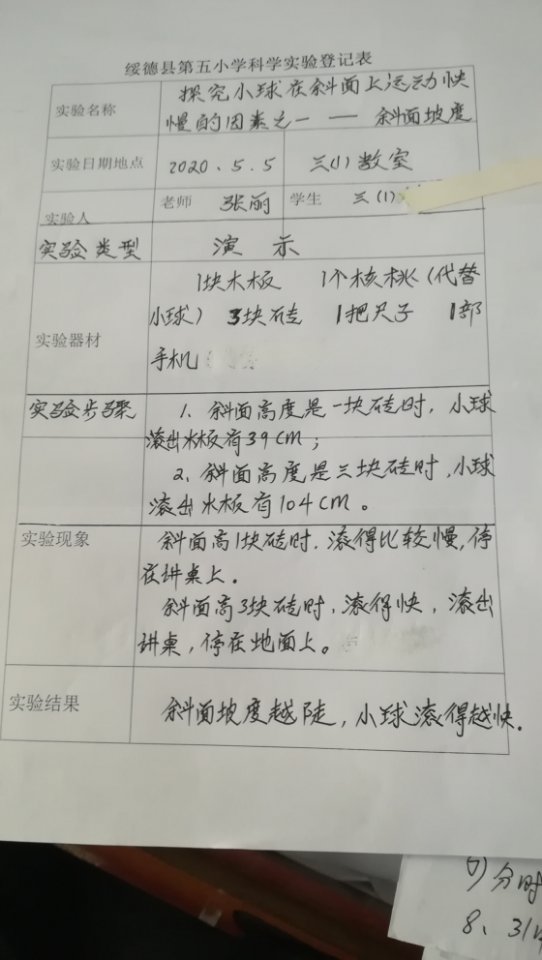 绥德县第五小学科学实验登记表
实验名称
探究小球在斜面上运动快
慢的因素之一 —— 斜面坡度
实验日期地点 2020.5.5 三(1)教室
实验人 老师 张丽 学生 三(1)
实验类型 演示
实验器材
1块木板 1个核桃(代替
小球) 3块砖 1把尺子 1部
手机
实验步骤 1、斜面高度是一块砖时,小球
滚出木板有39cm;
2、斜面高度是三块砖时,小球
滚出木板有104cm。
实验现象 斜面高1块砖时,滚得比较慢,停
在讲桌上。
斜面高3块砖时,滚得快,滚出
讲桌,停在地面上。
实验结果 斜面坡度越陡,小球滚得越快.
分时
8、31